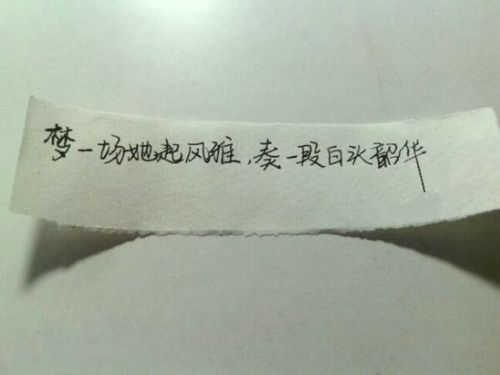 梦一场她起风雅，奏一段白头韶华